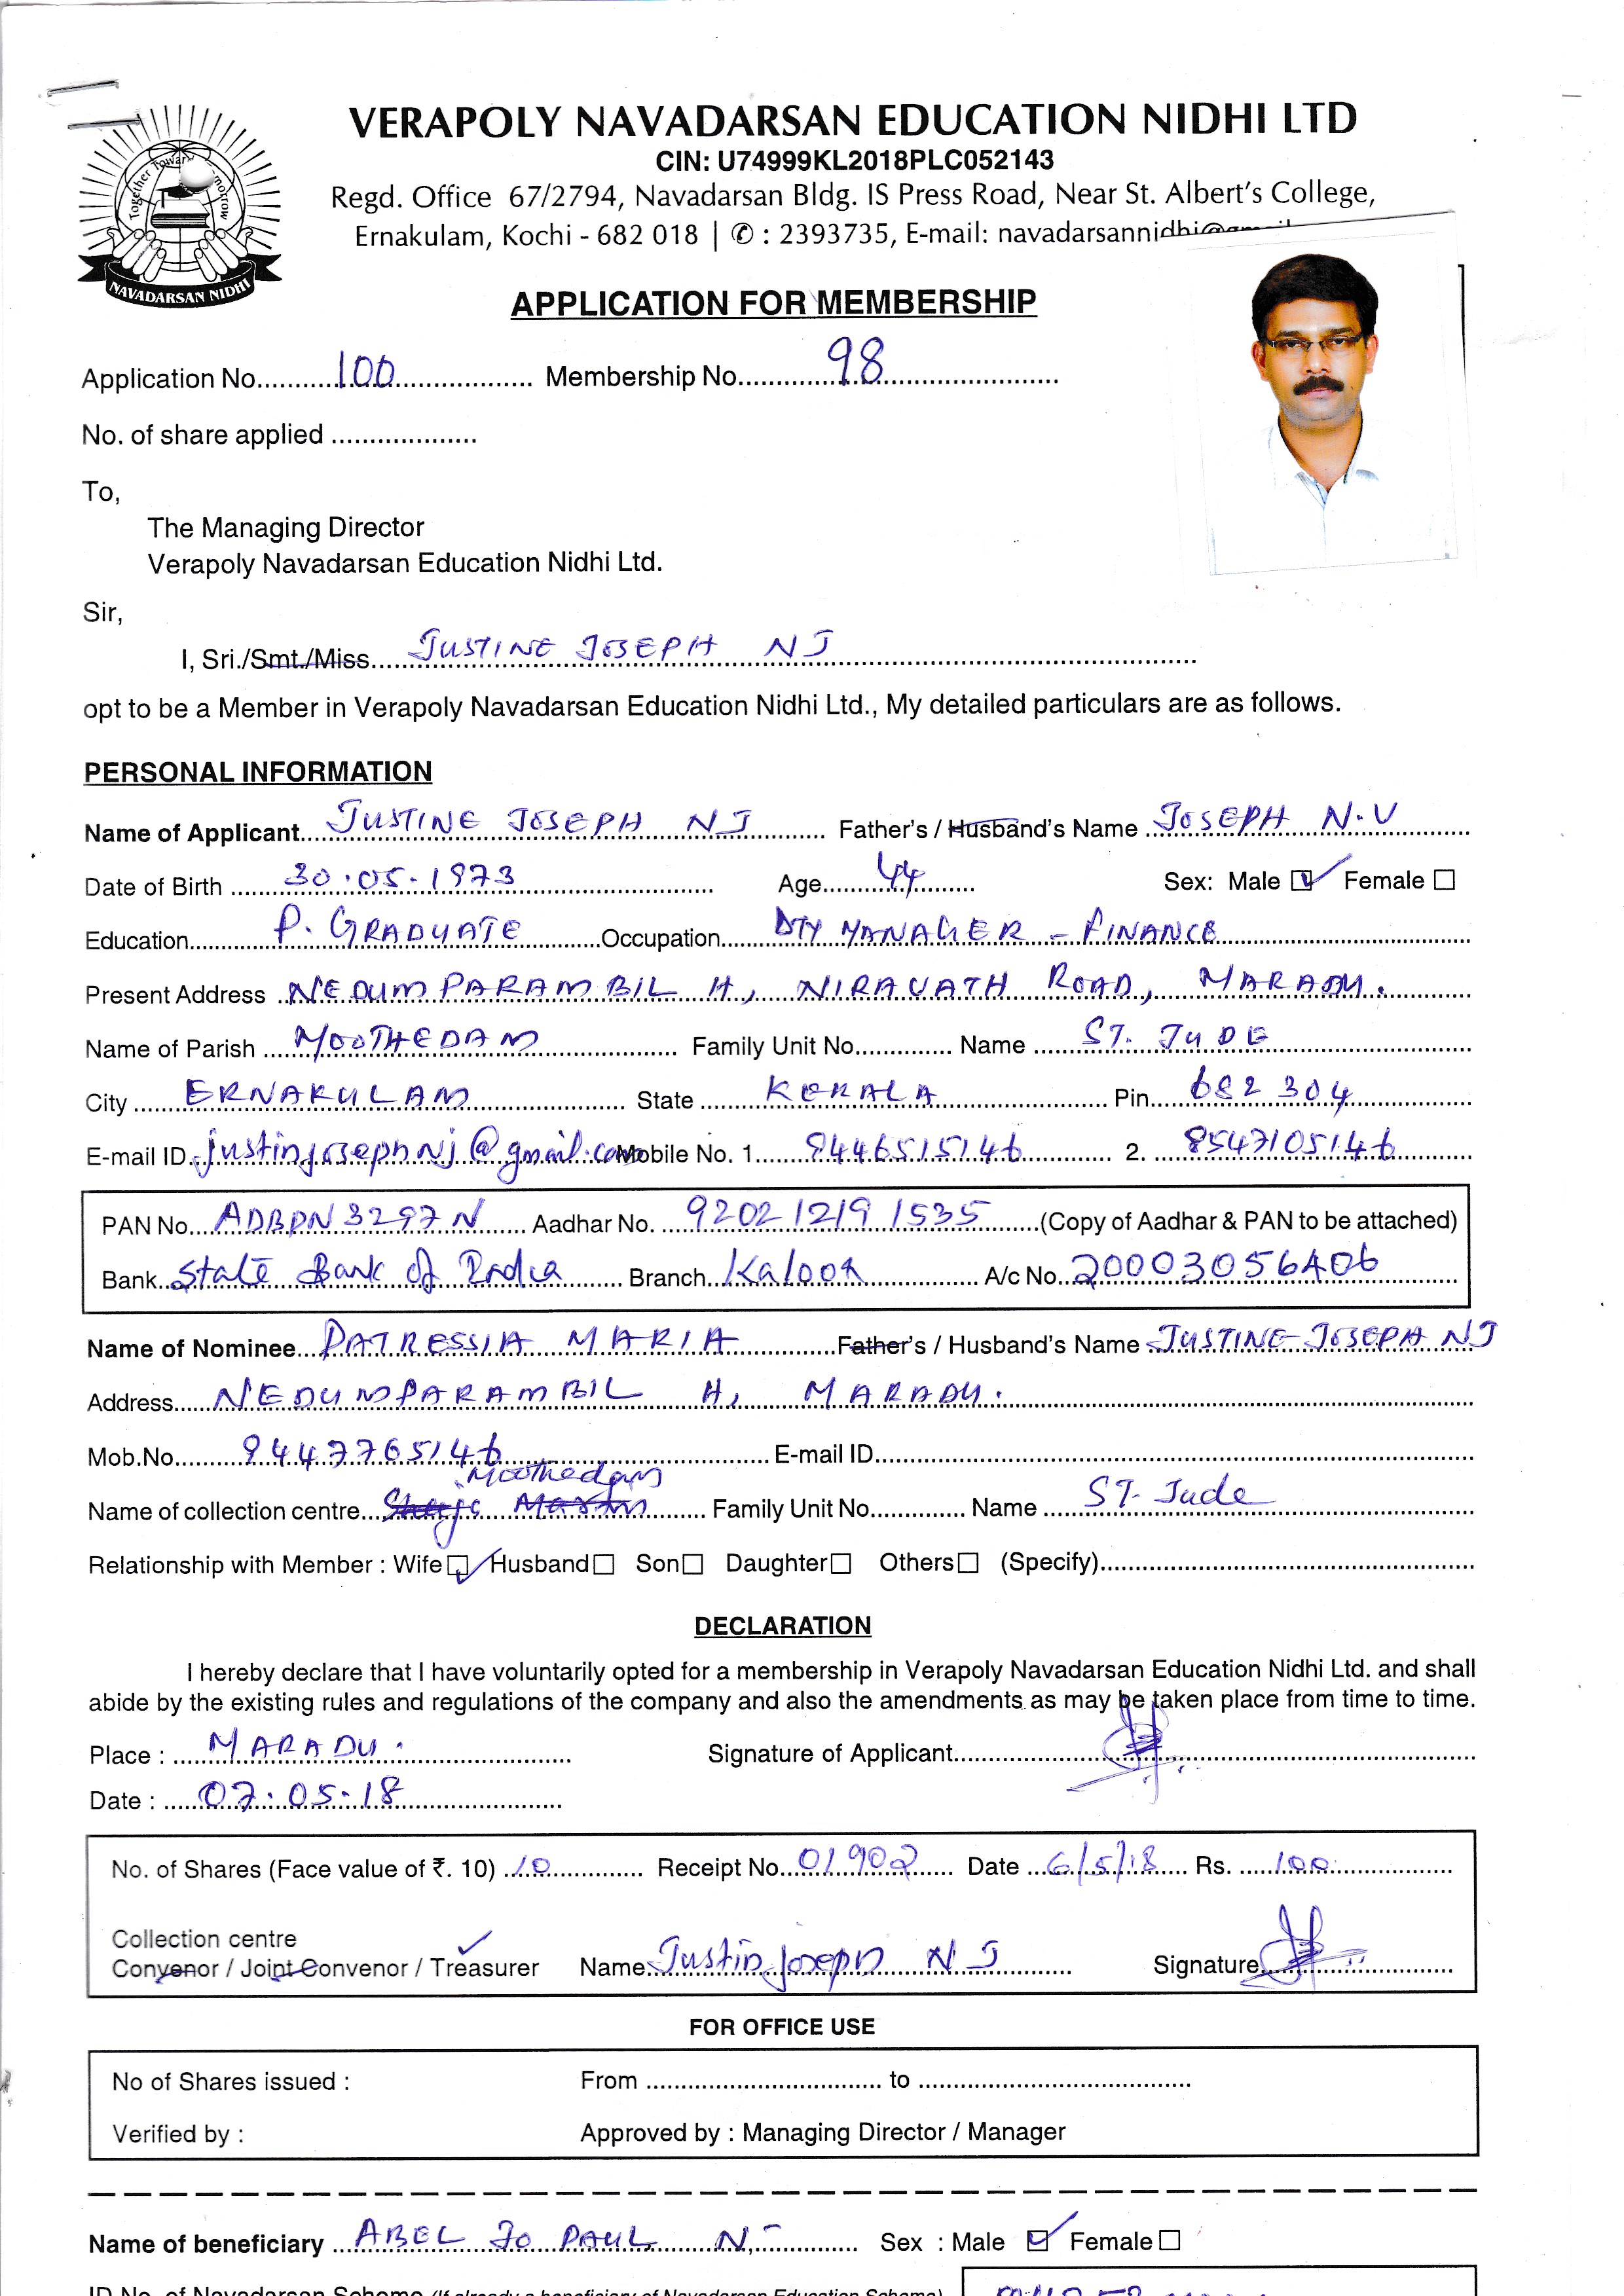 VERAPOLY NAVADARSAN EDUCATION NIDHI LTD
CIN: U74999KL2018PLC052143
Regd. Office 67/2794, Navadarsan Bldg. IS Press Road, Near St. Albert's College,
Ernakulam, Kochi - 682 018 | ✆ : 2393735, E-mail: navadarsannidhi@gmail
Together Towar morrow
NAVADARSAN NIDHI
APPLICATION FOR MEMBERSHIP
Application No. 100 Membership No. 98
No. of share applied
To,
The Managing Director
Verapoly Navadarsan Education Nidhi Ltd.
Sir,
I, Sri./Smt./Miss JUSTINE JOSEPH NJ
opt to be a Member in Verapoly Navadarsan Education Nidhi Ltd., My detailed particulars are as follows.
PERSONAL INFORMATION
Name of Applicant JUSTINE JOSEPH NJ Father's / Husband's Name JOSEPH N.V
Date of Birth 30.05.1973 Age 44 Sex: Male ☑ Female ☐
Education P. GRADUATE Occupation DTY MANAGER - FINANCE
Present Address NEDUMPARAMBIL H, NIRAVATH ROAD, MARADU.
Name of Parish MOOTHEDAM Family Unit No. Name ST. JUDE
City ERNAKULAM State KERALA Pin 682 304
E-mail ID justinjosephnj@gmail.com Mobile No. 1. 9446515146 2. 8547105146
PAN No. ADBPN3297N Aadhar No. 9202 1219 1535 (Copy of Aadhar & PAN to be attached)
Bank State Bank of India Branch Kaloor A/c No. 20003056406
Name of Nominee PATRESSIA MARIA Father's / Husband's Name JUSTINE JOSEPH NJ
Address NEDUMPARAMBIL H, MARADU.
Mob.No. 9447765146 E-mail ID
Moothedam
Name of collection centre Family Unit No. Name ST. Jude
Relationship with Member : Wife ☑ Husband ☐ Son ☐ Daughter ☐ Others ☐ (Specify)
DECLARATION
I hereby declare that I have voluntarily opted for a membership in Verapoly Navadarsan Education Nidhi Ltd. and shall
abide by the existing rules and regulations of the company and also the amendments as may be taken place from time to time.
Place : MARADU. Signature of Applicant
Date : 07.05.18
No. of Shares (Face value of ₹. 10) 10 Receipt No. 01902 Date 6/5/18 Rs. 100
Collection centre
Convenor / Joint Convenor / Treasurer Name Justin Joseph NJ Signature
FOR OFFICE USE
No of Shares issued : From to
Verified by : Approved by : Managing Director / Manager
Name of beneficiary ABEL JO PAUL N, Sex : Male ☑ Female ☐
ID No. of Navadarsan Scheme (If already a beneficiary of Navadarsan Education Scheme)